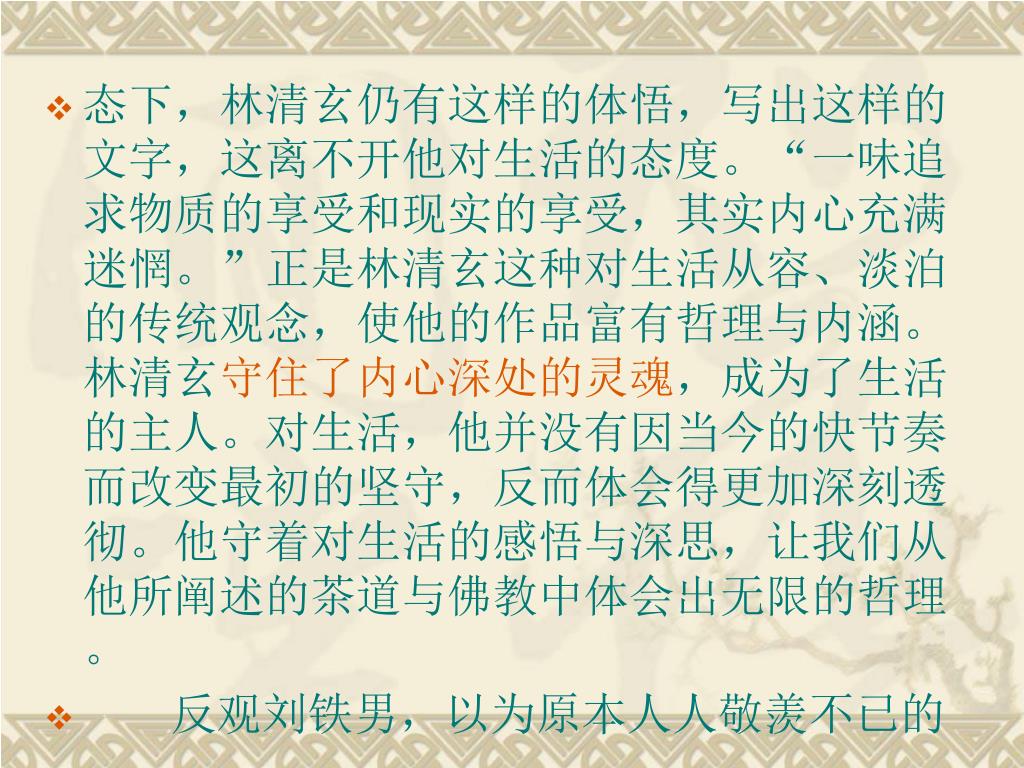 态下，林清玄仍有这样的体悟，写出这样的
文字，这离不开他对生活的态度。“一味追
求物质的享受和现实的享受，其实内心充满
迷惘。”正是林清玄这种对生活从容、淡泊
的传统观念，使他的作品富有哲理与内涵。
林清玄守住了内心深处的灵魂，成为了生活
的主人。对生活，他并没有因当今的快节奏
而改变最初的坚守，反而体会得更加深刻透
彻。他守着对生活的感悟与深思，让我们从
他所阐述的茶道与佛教中体会出无限的哲理
。
反观刘铁男，以为原本人人敬羡不已的